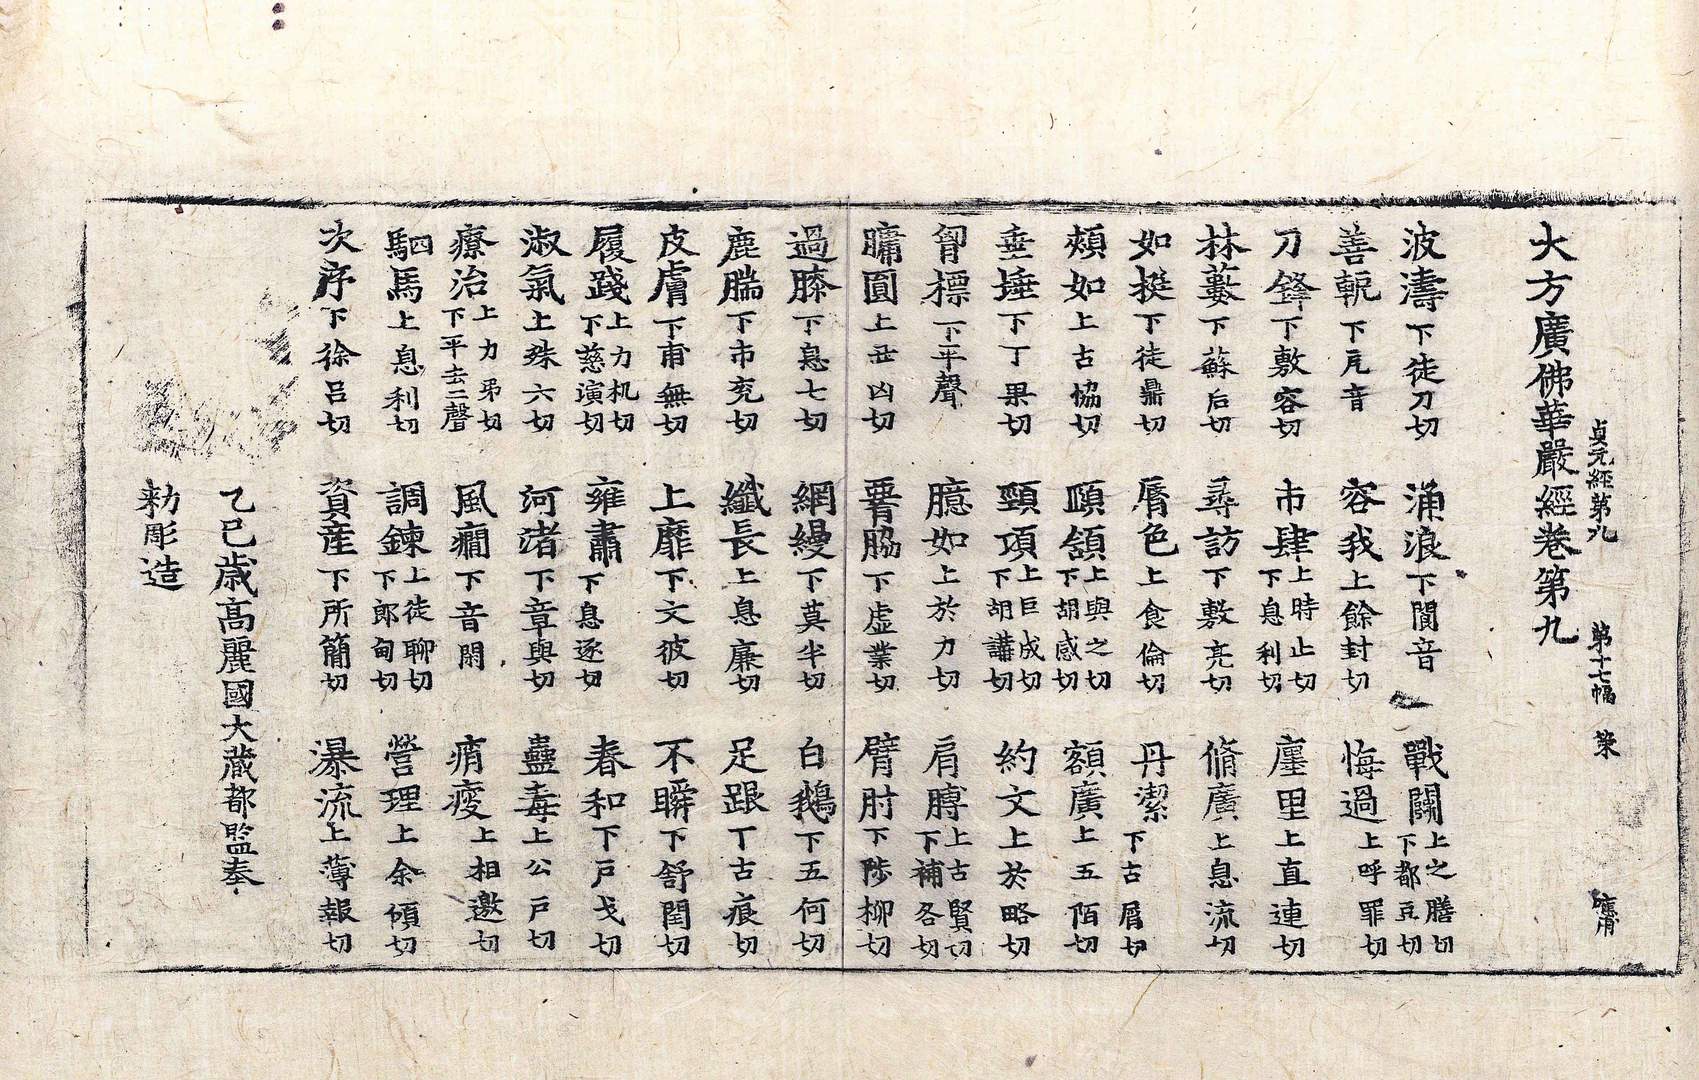 大方廣佛華嚴經卷第九
貞元經第九 第十七幅 策
波濤下徒刀切 涌浪下閬音 戰鬪上之膳切下都豆切
善軛下戹音 容我上餘封切 悔過上呼罪切
刀鋒下敷容切 市肆上時止切下息利切 廛里上直連切
林藪下蘇后切 尋訪下敷亮切 脩廣上息流切
如挻下徒鼎切 脣色上食倫切 丹潔下古屑切
頰如上古協切 頤頷上與之切下胡感切 額廣上五陌切
垂埵下丁果切 頸項上巨成切下胡講切 約文上於略切
胷摽下平聲 臆如上於力切 肩膊上古賢切下補各切
𦟛圓上丑凶切 䏮脇下虛業切 臂肘下陟柳切
過膝下息七切 網縵下莫半切 白鵝下五何切
鹿腨下市兖切 纖長上息廉切 足跟丁古痕切
皮膚下甫無切 上靡下文彼切 不瞬下舒閏切
履踐上力机切下慈演切 雍肅下息逐切 春和下戶戈切
淑氣上殊六切 河渚下章與切 蠱毒上公戶切
療治上力弔切下平去二聲 風癎下音閑 痟瘦上相邀切
駟馬上息利切 調鍊上徒聊切下郎甸切 營理上余傾切
次序下徐呂切 資產下所簡切 瀑流上薄報切
乙巳歳高麗國大藏都監奉
勑彫造